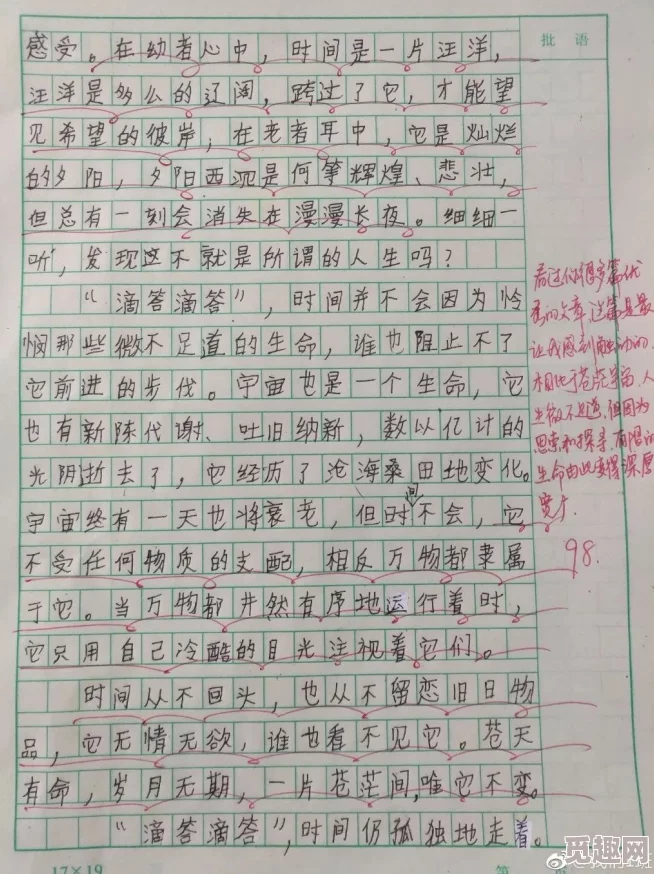 批 语
感受。在幼者心中，时间是一片汪洋，
汪洋是多么的辽阔，跨过了它，才能望
见希望的彼岸；在老者耳中，它是灿烂
的夕阳，夕阳西沉是何等辉煌、悲壮，
但总有一刻会消失在漫漫长夜。细细一
听，发现这不就是所谓的人生吗？
“滴答滴答”，时间并不会因为怜
悯那些微不足道的生命，谁也阻止不了
它前进的步伐。宇宙也是一个生命，它
也有新陈代谢、吐旧纳新，数以亿计的
光阴逝去了，它经历了沧海桑田地变化。
宇宙终有一天也将衰老，但时间不会，它
不受任何物质的支配，相反万物都隶属
于它。当万物都井然有序地运行着时，
它只用自己冷酷的目光注视着它们。
时间从不回头，也从不留恋旧日物
品，它无情无欲，谁也看不见它。苍天
有命，岁月无期，一片苍茫间，唯它不变。
“滴答滴答”，时间仍孤独地走着。
看过你很多篇优
秀的文章，这篇是最
让我感到触动的，
相比于苍茫宇宙，人
生微不足道，但因为
思索和探寻，有限的
生命由此变得深厚
宽广。
98.
17×19
第
觅趣网